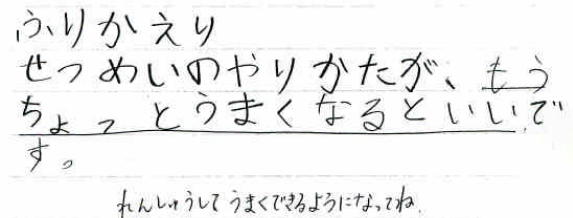 ふりかえり
せつめいのやりかたが、もう
ちょっとうまくなるといいで
す。
れんしゅうしてうまくできるようになってね。